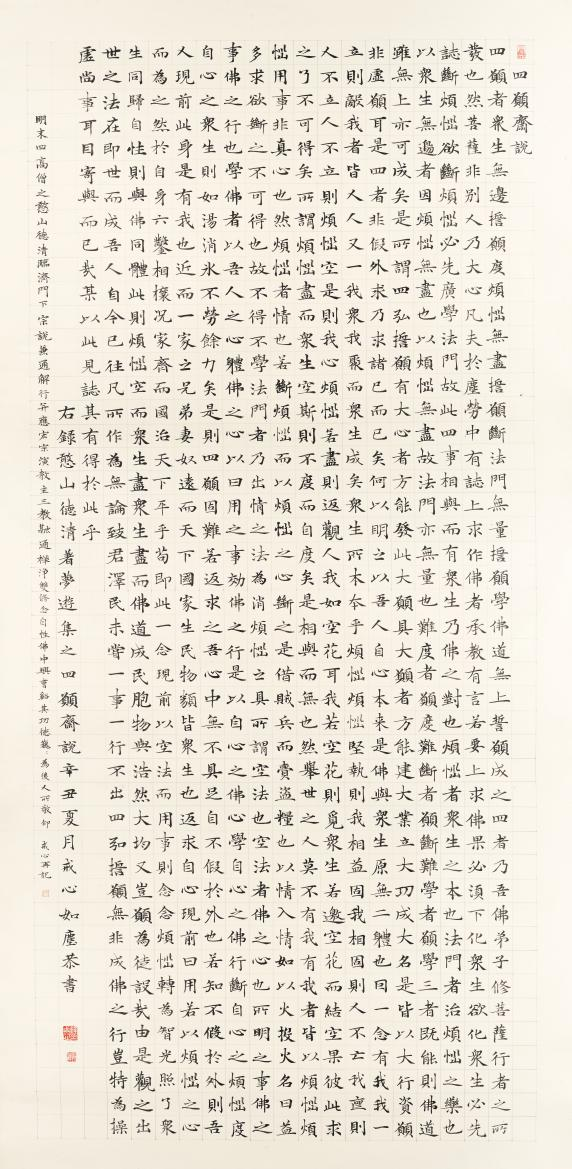 四願齋說
四願者眾生無邊誓願度煩惱無盡誓願斷法門無量誓願學佛道無上誓願成之四者乃吾佛弟子修菩薩行者之所
發也然菩薩非別人乃大心凡夫於塵勞中有誌上求作佛者承教有言若要上求佛果必須下化眾生欲化眾生必先
誌斷煩惱欲斷煩惱必先廣學法門故此四事相與而有眾生乃佛之對也煩惱者眾生之本也法門者治煩惱之藥也
以眾生無邊者因煩惱無盡也以煩惱無盡故法門亦無量也難度者願度難斷者願斷難學者願學三者既能則佛道
雖無上亦可成矣是所謂四弘誓願有大心者方能發此大願具大願者方能建大業立大功成大名是皆以大行資願
非虛願耳是四者非假外求乃求諸己而已矣何以明之以吾人自心本來是佛與眾生原無二體也因一念有我我一
立則敵我者皆人人又一我眾我聚而眾生成矣眾生所本本乎煩惱煩惱堅執則我相益固我相固則人不亡我則
人不立人不立則煩惱空是則我心煩惱若盡則返觀人我如空花耳我若空花則覓眾生若邀空花而結空果彼此求
之了不可得矣所謂煩惱盡而眾生空斯則不度而自度矣是相與而無也然舉世之人莫不有我有我者皆以煩惱煩
惱用事非真心也然煩惱者情也若斷煩惱而以煩惱之心斷之是借賊兵而賫盜糧也以情入情如以火投火名曰益
多求欲斷之不可得也故不得不學法門者乃出情之法為消煩惱之具所謂空法也空法者佛之心也所明之事佛之
事佛之行也學佛者以吾人之心體佛之心以日用之事劾佛之行是以自心之佛心學自心之佛行斷自心之煩惱度
自心之眾生則如湯消氷不勞餘力矣是則四願固難若返求之吾心中無不具足自不假於外也若知不假於外則吾
人現前此身是有我也近而一家之兄弟妻奴遠而天下國家生民物類皆眾生也返求自心現前日用若以煩惱之心
而為之然於自身六鑿相攘況家齋而國治天下平乎苟即此一念現前以空法而用事則念念煩惱轉為智光照了眾
生同歸自性則與佛同體此則煩惱空而眾生盡眾生盡而佛道成民胞物與浩然大均又豈願為徒設哉由是觀之出
世之法在即世而成吾人自今已往凡所作為無論致君澤民未嘗一事一行不出四弘誓願無非成佛之行豈特為操
虛尚事耳目寄興而已哉某以此見誌其有得於此乎
右錄憨山德清著夢遊集之四願齋說辛丑夏月戒心如塵恭書
明末四高僧之憨山德清臨濟門下宗說兼通解行並應宏宗演教主三教融通禪淨雙修念自性佛中興曹谿其功德巍巍為後人所敬仰 戒心再記